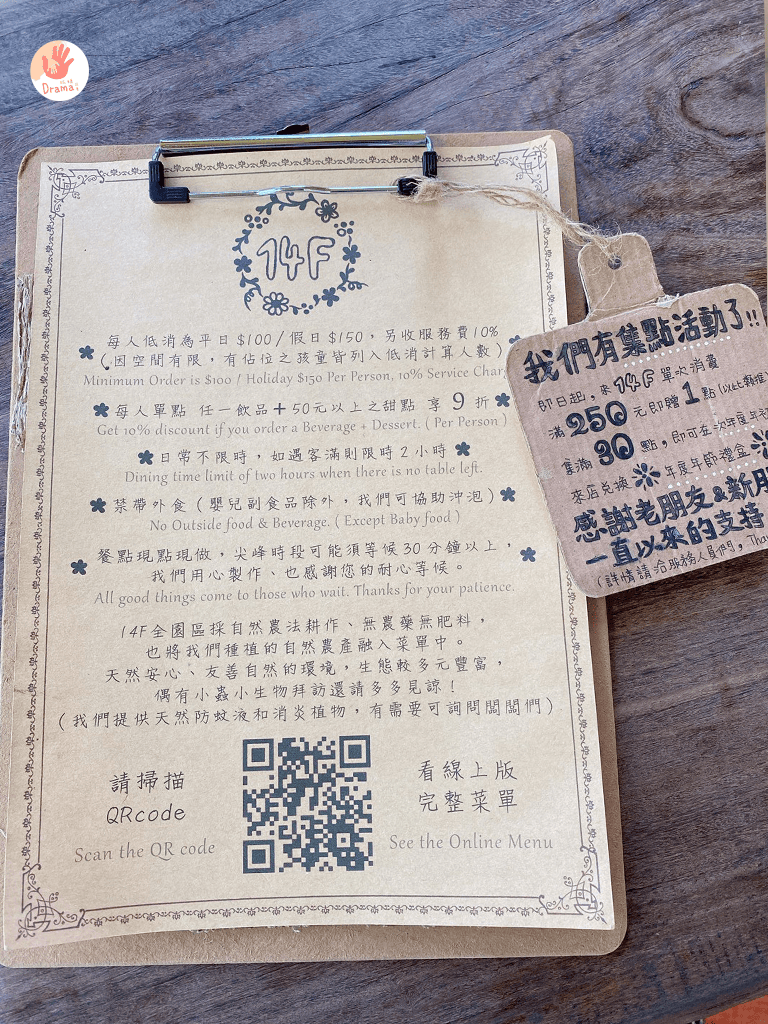 玩啥
Drama
14F
每人低消為平日 $100 / 假日 $150，另收服務費10%
(因空間有限，有佔位之孩童皆列入低消計算人數)
Minimum Order is $100 / Holiday $150 Per Person, 10% Service
每人單點 任一飲品+50元以上之甜點 享 9 折
Get 10% discount if you order a Beverage + Dessert. ( Per Person )
日常不限時，如遇客滿則限時2小時
Dining time limit of two hours when there is no table left.
禁帶外食 ( 嬰兒副食品除外，我們可協助沖泡 )
No Outside food & Beverage. ( Except Baby food )
餐點現點現做，尖峰時段可能須等候30分鐘以上，
我們用心製作、也感謝您的耐心等候。
All good things come to those who wait. Thanks for your patience.
14F全園區採自然農法耕作、無農藥無肥料，
也將我們種植的自然農產融入菜單中。
天然安心、友善自然的環境，生態較多元豐富，
偶有小蟲小生物拜訪還請多多見諒！
( 我們提供天然防蚊液和消炎植物，有需要可詢問闆闆們 )
請掃描
QRcode
Scan the QR code
看線上版
完整菜單
See the Online Menu
我們有集點活動了!!
即日起，來14F單次消費
滿250元即贈1點(以此類推)
集滿30點，即可在次年度年
來店兌換 年度年節禮盒
感謝老朋友&新朋
一直以來的支持
(詳情請洽服務人員們，